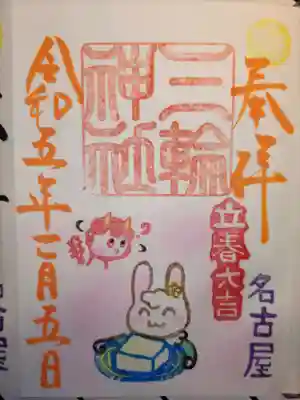 奉拝
三輪
神社
立春大吉
名古屋
令和五年二月五日